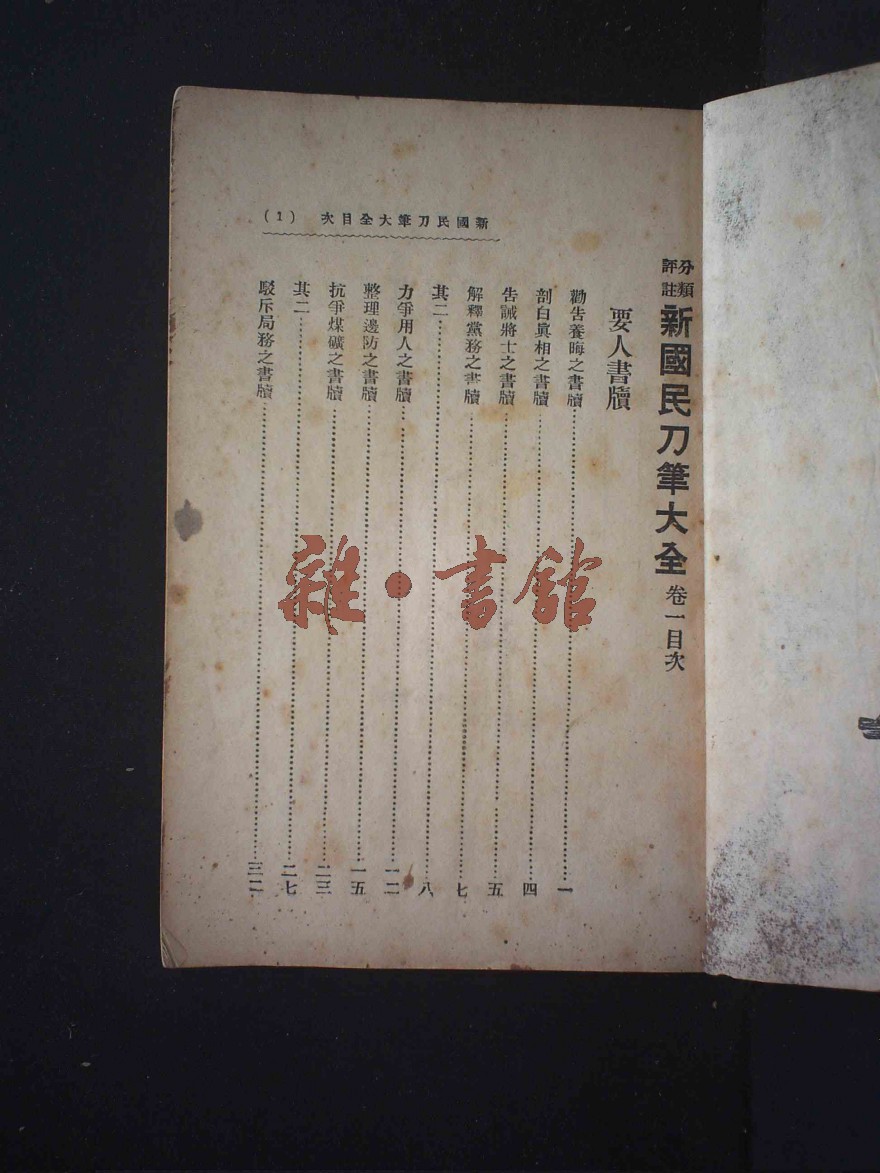 新國民刀筆大全目次 (1)
分類
評註
新國民刀筆大全 卷一目次
要人書牘
勸告養晦之書牘…………一
剖白眞相之書牘…………四
告誡將士之書牘…………五
解釋黨務之書牘…………七
其二…………八
力爭用人之書牘…………一二
整理邊防之書牘…………一五
抗爭煤礦之書牘…………二三
其二…………二七
駁斥局務之書牘…………三二
雜·書館